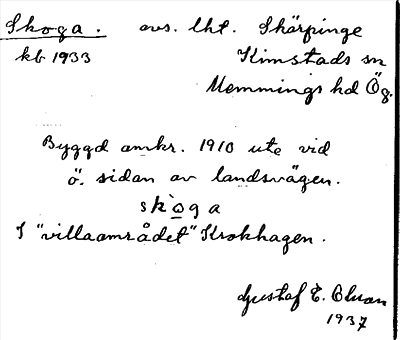 Skoga. avs. lht. Skärpinge
kb 1933 Kimstads sn
Memmings hd Ög.
Byggd omkr. 1910 ute vid
ö. sidan av landsvägen.
skòga
I "villaområdet" Krokhagen.
Gustaf E. Olsson
1937